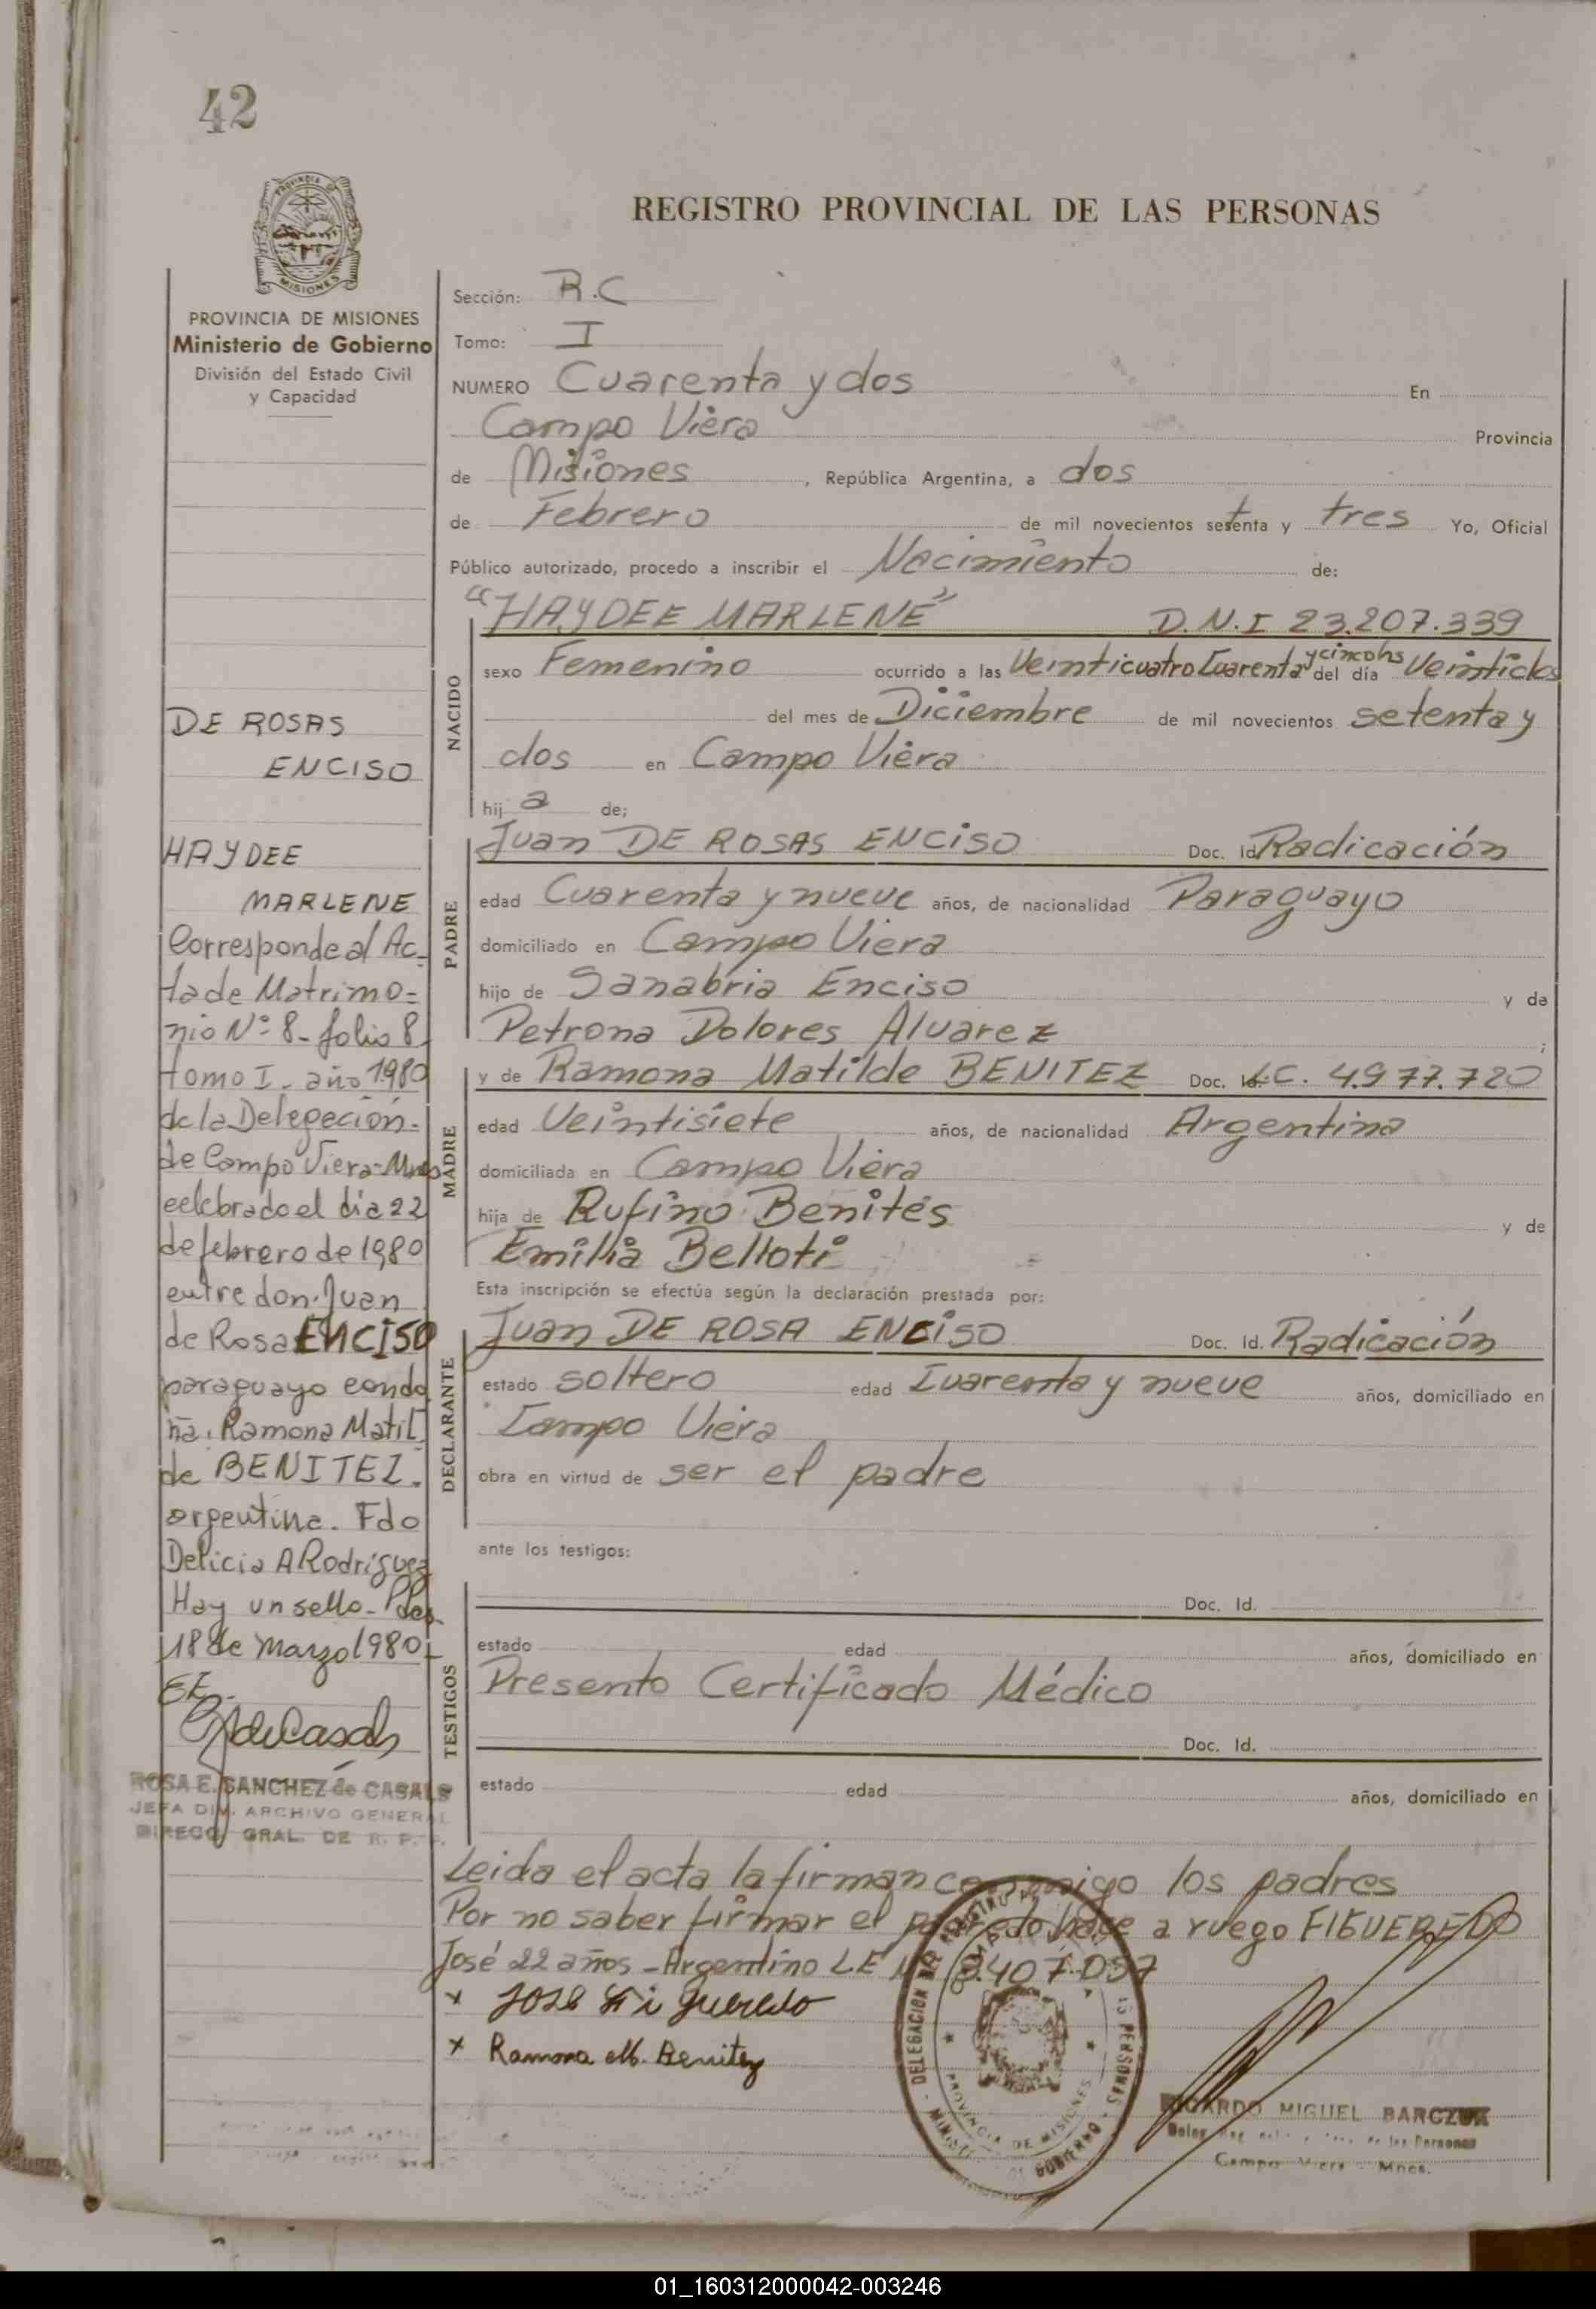 42
REGISTRO PROVINCIAL DE LAS PERSONAS
PROVINCIA DE MISIONES
Ministerio de Gobierno
División del Estado Civil
y Capacidad
DE ROSAS
ENCISO
HAYDEE
MARLENE
Corresponde al Ac-
ta de Matrimo=
nio Nº 8- folio 8
tomo I- año 1980
de la Delegación-
de Campo Viera-Mnes
celebrado el día 22
de febrero de 1980
entre don Juan
de Rosas ENCISO
paraguayo con do
ña Ramona Matil
de BENITEZ.
argentina. Fdo
Delicia A Rodriguez
Hay un sello- Pdas
18 de Marzo 1980-
ROSA E. SANCHEZ de CASALS
JEFA DIV. ARCHIVO GENERAL
DIRECC. GRAL. DE R. P. P.
Sección: R.C
Tomo: I
NUMERO Cuarenta y dos En
Campo Viera Provincia
de Misiones , República Argentina, a dos
de Febrero de mil novecientos setenta y tres Yo, Oficial
Público autorizado, procedo a inscribir el Nacimiento de:
"HAYDEE MARLENE" D.N.I 23.207.339
NACIDO
sexo Femenino ocurrido a las Veinticuatro Cuarenta y cinco hs del día Veintidos
del mes de Diciembre de mil novecientos setenta y
dos en Campo Viera
hij a de;
PADRE
Juan DE ROSAS ENCISO Doc. Id. Radicación
edad Cuarenta y nueve años, de nacionalidad Paraguayo
domiciliado en Campo Viera
hijo de Sanabria Enciso y de
Petrona Dolores Alvarez ;
MADRE
y de Ramona Matilde BENITEZ Doc. Id. L.C. 4.977.720
edad Veintisiete años, de nacionalidad Argentina
domiciliada en Campo Viera
hija de Rufino Benites y de
Emilia Belloti
Esta inscripción se efectúa según la declaración prestada por:
DECLARANTE
Juan DE ROSA ENCISO Doc. Id. Radicación
estado soltero edad Cuarenta y nueve años, domiciliado en
Campo Viera
obra en virtud de ser el padre
ante los testigos:
TESTIGOS
Doc. Id.
estado edad años, domiciliado en
Presento Certificado Médico
Doc. Id.
estado edad años, domiciliado en
Leida el acta la firman conmigo los padres
Por no saber firmar el padre lo hace a ruego FIGUEREDO
José 22 años - Argentino L.E Nº 8.407.057
x José Figueredo
x Ramona M. Benitez
DELEGACION DEL REGISTRO PERSONAS - MINIST GOBIERNO
PROVINCIA DE MISIONES
RICARDO MIGUEL BARCZUK
de las Personas
Campo Viera - Mnes.
01_160312000042-003246